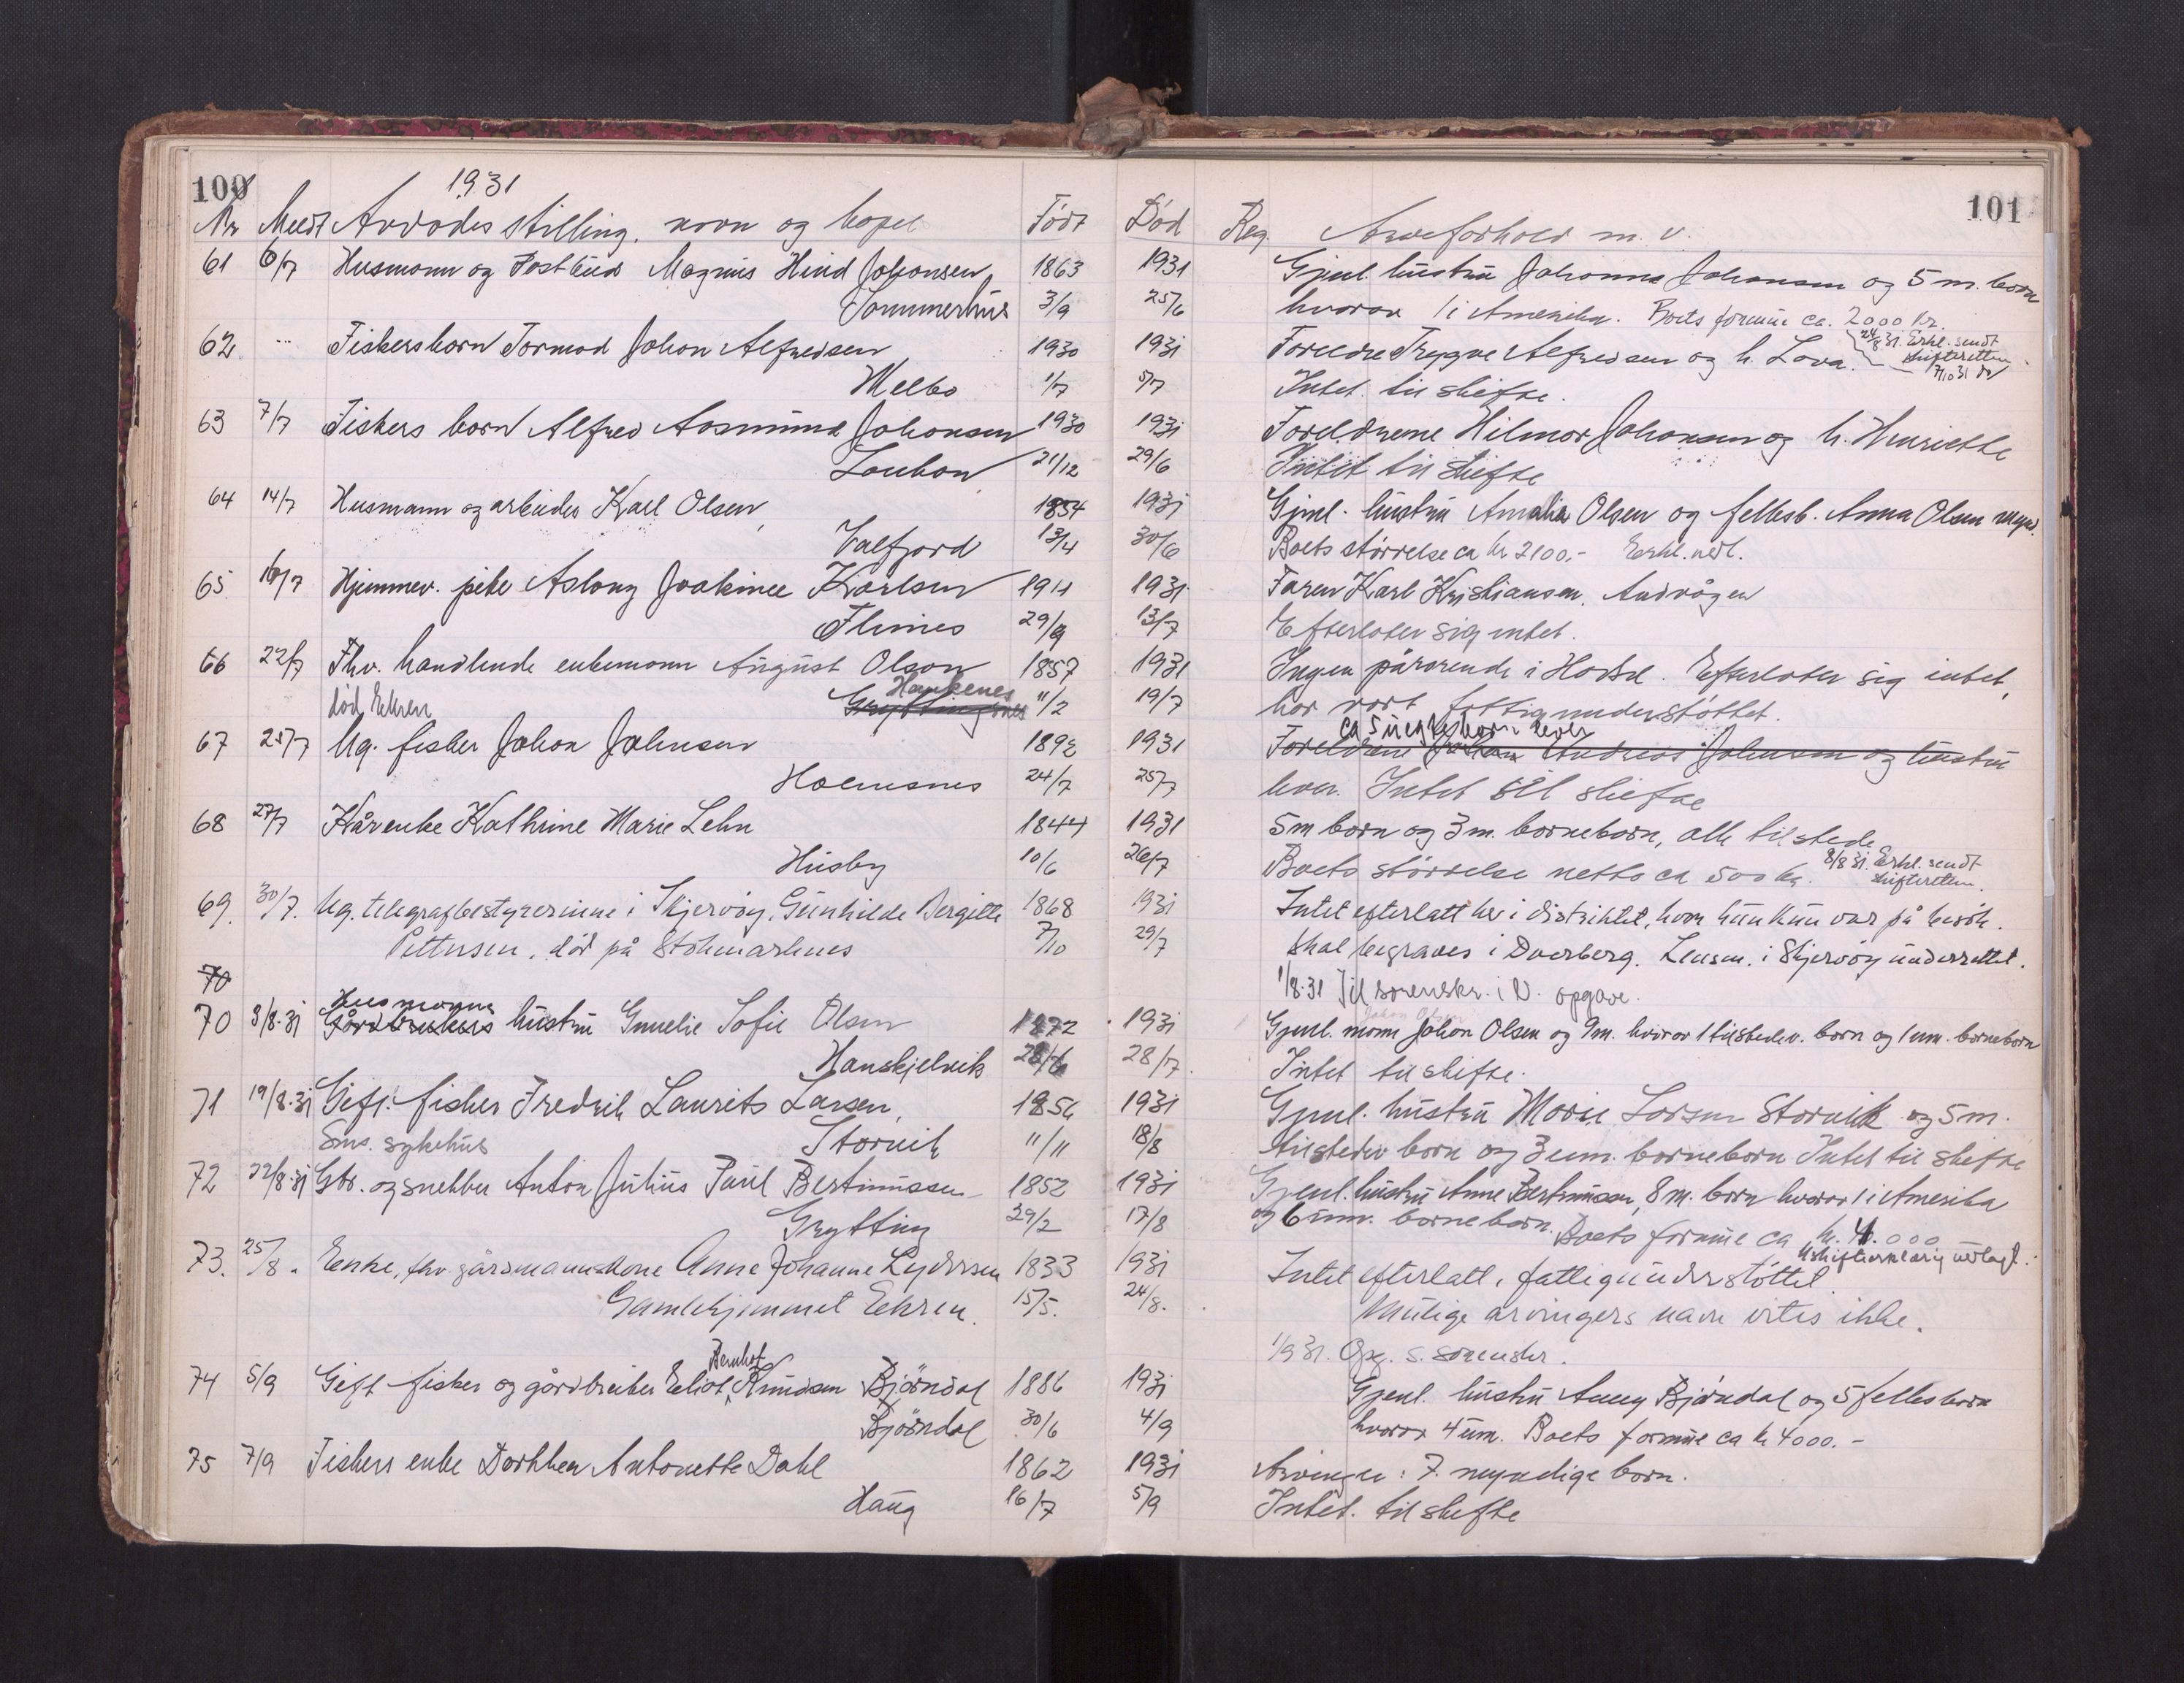 100
1931
Nr Meldt Avdødes stilling, navn og bopel Født Død Reg. Arveforhold m. v.
101
61 6/7 Husmann og Postbud Magnus Hind Johansen, 1863 1931 Gjenl. hustru Johanna Johansen og 5 m. born
Sommerhus 3/9 25/6 hvorav 1 i Amerika. Boets formue ca. 2000 kr.
24/8 31. Erkl. sendt
skifteretten
7/10 31
62 Fiskersborn Tormod Johan Alfredsen 1930 1931 Foreldre Trygve Alfredsen og h. Lova.
Melbo 1/7 5/7 Intet til skifte.
63 7/7 Fiskers born Alfred Aasmund Johansen 1930 1931 Foreldrene Hilmar Johansen og h. Henriette
21/12 29/6 Intet til skifte
64 14/7 Husmann og arbeider Karl Olsen, 1854 1931 Gjenl. hustru Amalia Olsen og fellesb. Anna Olsen
Valfjord 13/4 30/6 Boets størrelse ca kr 2100.- Erkl. vedl.
65 16/7 Hjemmev. pike Aslaug Joakime Karlsen 1911 1931 Faren Karl Kristiansen, Andvågen
Flines 29/9 13/7 Efterlater sig intet.
66 22/7 Fhv. handlende enkemann August Olsen 1857 1931 Ingen pårørende i Hadsel. Efterlater sig intet,
død Ekren Haukenes Gryttingsnes 11/2 19/7 har vært fattigunderstøttet.
67 25/7 Ug. fisker Johan Johnsen 1892 1931 Foreldrene Johan Andreas Johnsen og hustru
Holmsnes 24/7 25/7 lever. Intet til skifte
68 27/7 Kårenke Kathrine Marie Lehn 1844 1931 5 m born og 3 m. borneborn, alle tilstede
Husby 10/6 26/7 Boets størrelse netto ca 500 kr. 8/8 31. Erkl. sendt
skifteretten.
69. 30/7. Ug. telegrafbestyrerinne i Skjervøy, Gunhilde Bergitte 1868 1931 Intet efterlatt her i distriktet, hvor hun kun var på besøk.
Pettersen, død på Stokmarknes 7/10 29/7 Skal begraves i Dverberg. Lensm. i Skjervøy underrettet.
70 1/8.31 Til sorenskr. i V. opgave.
Husmanns
70 3/8.31 Gårdbrukers hustru Emelie Sofie Olsen 1872 1931 Gjenl. mann Johan Olsen og 9 m. hvorav 1 tilstedev. born og 1 um. borneborn
Hanskjelvik 28/6 28/7. Intet til skifte.
71 19/8.31 Gift fisker Fredrik Laurits Larsen, 1856 1931 Gjenl. hustru Marie Larsen Storvik og 5 m.
Sms. sykehus Storvik 11/11 18/8 tilstedev born og 3 um. borneborn Intet til skifte
72 22/8.31 Gbr. og snekker Anton Julius Paul Bertinussen 1852 1931 Gjenl. hustru Anne Bertinussen, 8 m. born hvorav 1 i Amerika
Grytting 29/2 17/8 og 6 um. borneborn. Boets formue ca kr. 4.000
Uskifteerklæring vedlagt.
73. 25/8. Enke, fhv. gårdmannskone Anne Johanne Lydersen 1833 1931 Intet efterlatt, fattigunderstøttet.
Gamlehjemmet Eekren. 15/5. 24/8. Mulige arvingers navn vites ikke.
1/9 31. Opg. s. sorenskr.
Bernhof
74 5/9 Gift fisker og gårdbruker Eliot Knudsen Bjørndal 1886 1931 Gjenl. hustru Anny Bjørndal og 5 fellesborn
Bjørndal 30/6 4/9 hvorav 4 um. Boets formue ca kr 4000.-
75 7/9 Fiskers enke Dorthea Antonette Dahl 1862 1931 Arvinger: 7 myndige born.
Haug 16/7 5/9 Intet til skifte